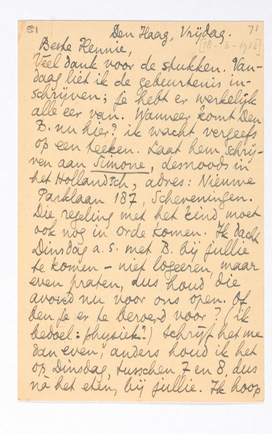 Den Haag, Vrijdag.
71
Beste Hennie,
Veel dank voor de stukken. Van-
daag liet ik de gebeurtenis in-
schrijven; je hebt er werkelijk
alle eer van. Wanneer komt Den
B. nu hier? ik wacht vergeefs
op een teeken. Laat hem schrij-
ven aan Simone, desnoods in
het Hollandsch, adres: Nieuwe
Parklaan 187, Scheveningen.
Die regeling met het kind moet
ook nog in orde komen. Ik dacht
Dinsdag a.s. met B. bij jullie
te komen – niet logeeren, maar
even praten, dus houd die
avond nu voor ons open. Of
ben je er te beroerd voor? (ik
bedoel: physiek?) Schrijf het me
dan even; anders houd ik het
op Dinsdag, tusschen 7 en 8, dus
nà het eten, bij jullie. Ik hoop